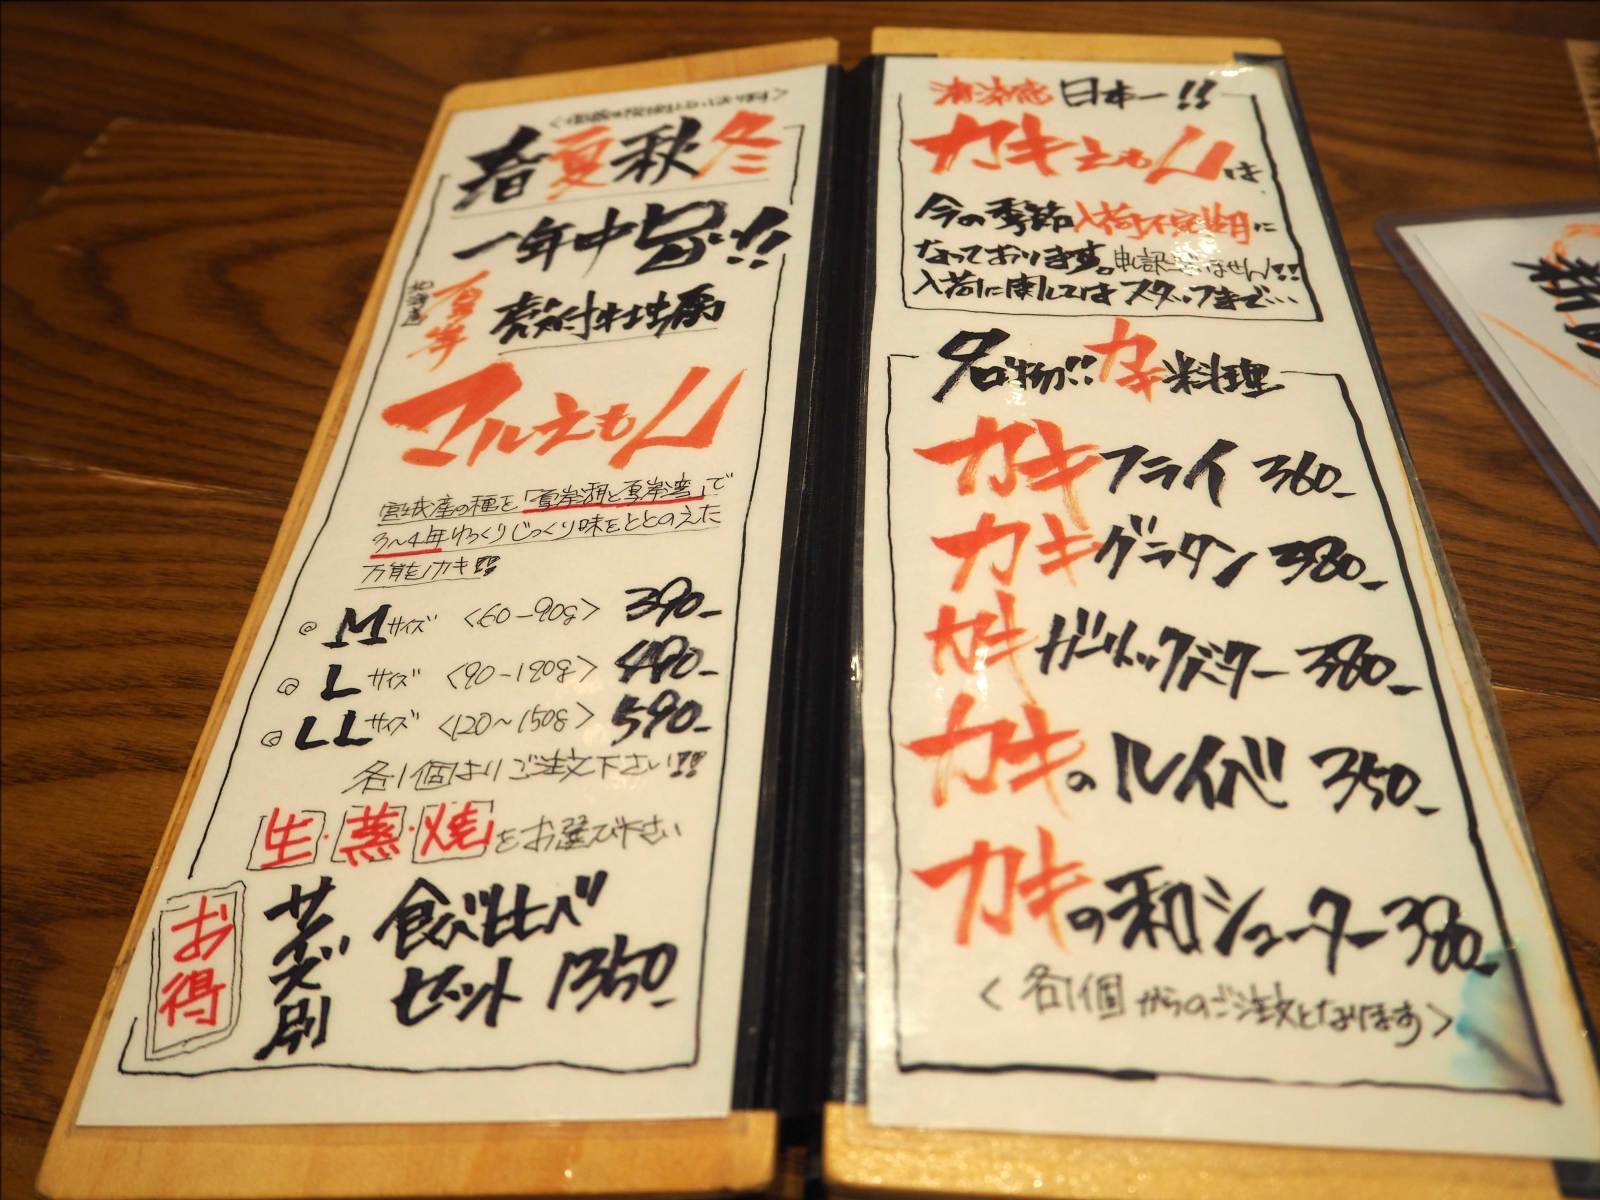 春夏秋冬
一年中旨い!!
北海道
厚岸
殻付牡蛎
マルえもん
宮城産の種を「厚岸湖と厚岸湾」で
3〜4年ゆっくりじっくり味をととのえた
万能カキ!!
@ Mサイズ <60-90g> 390-
@ Lサイズ <90-120g> 490-
@ LLサイズ <120〜150g> 590-
各1個よりご注文下さい!!
生・蒸・焼をお選び下さい
お得
サイズ別
食べ比べ
セット 1350-
日本一!!
カキえもんは、
今の季節入荷不定期に
なっております。申訳ございません!!
入荷に関してはスタッフまで…
名物!!カキ料理
カキフライ 360-
カキグラタン 380-
カキガーリックバター 380-
カキのルイベ 350-
カキの和シューター 380-
<各1個からのご注文となります>